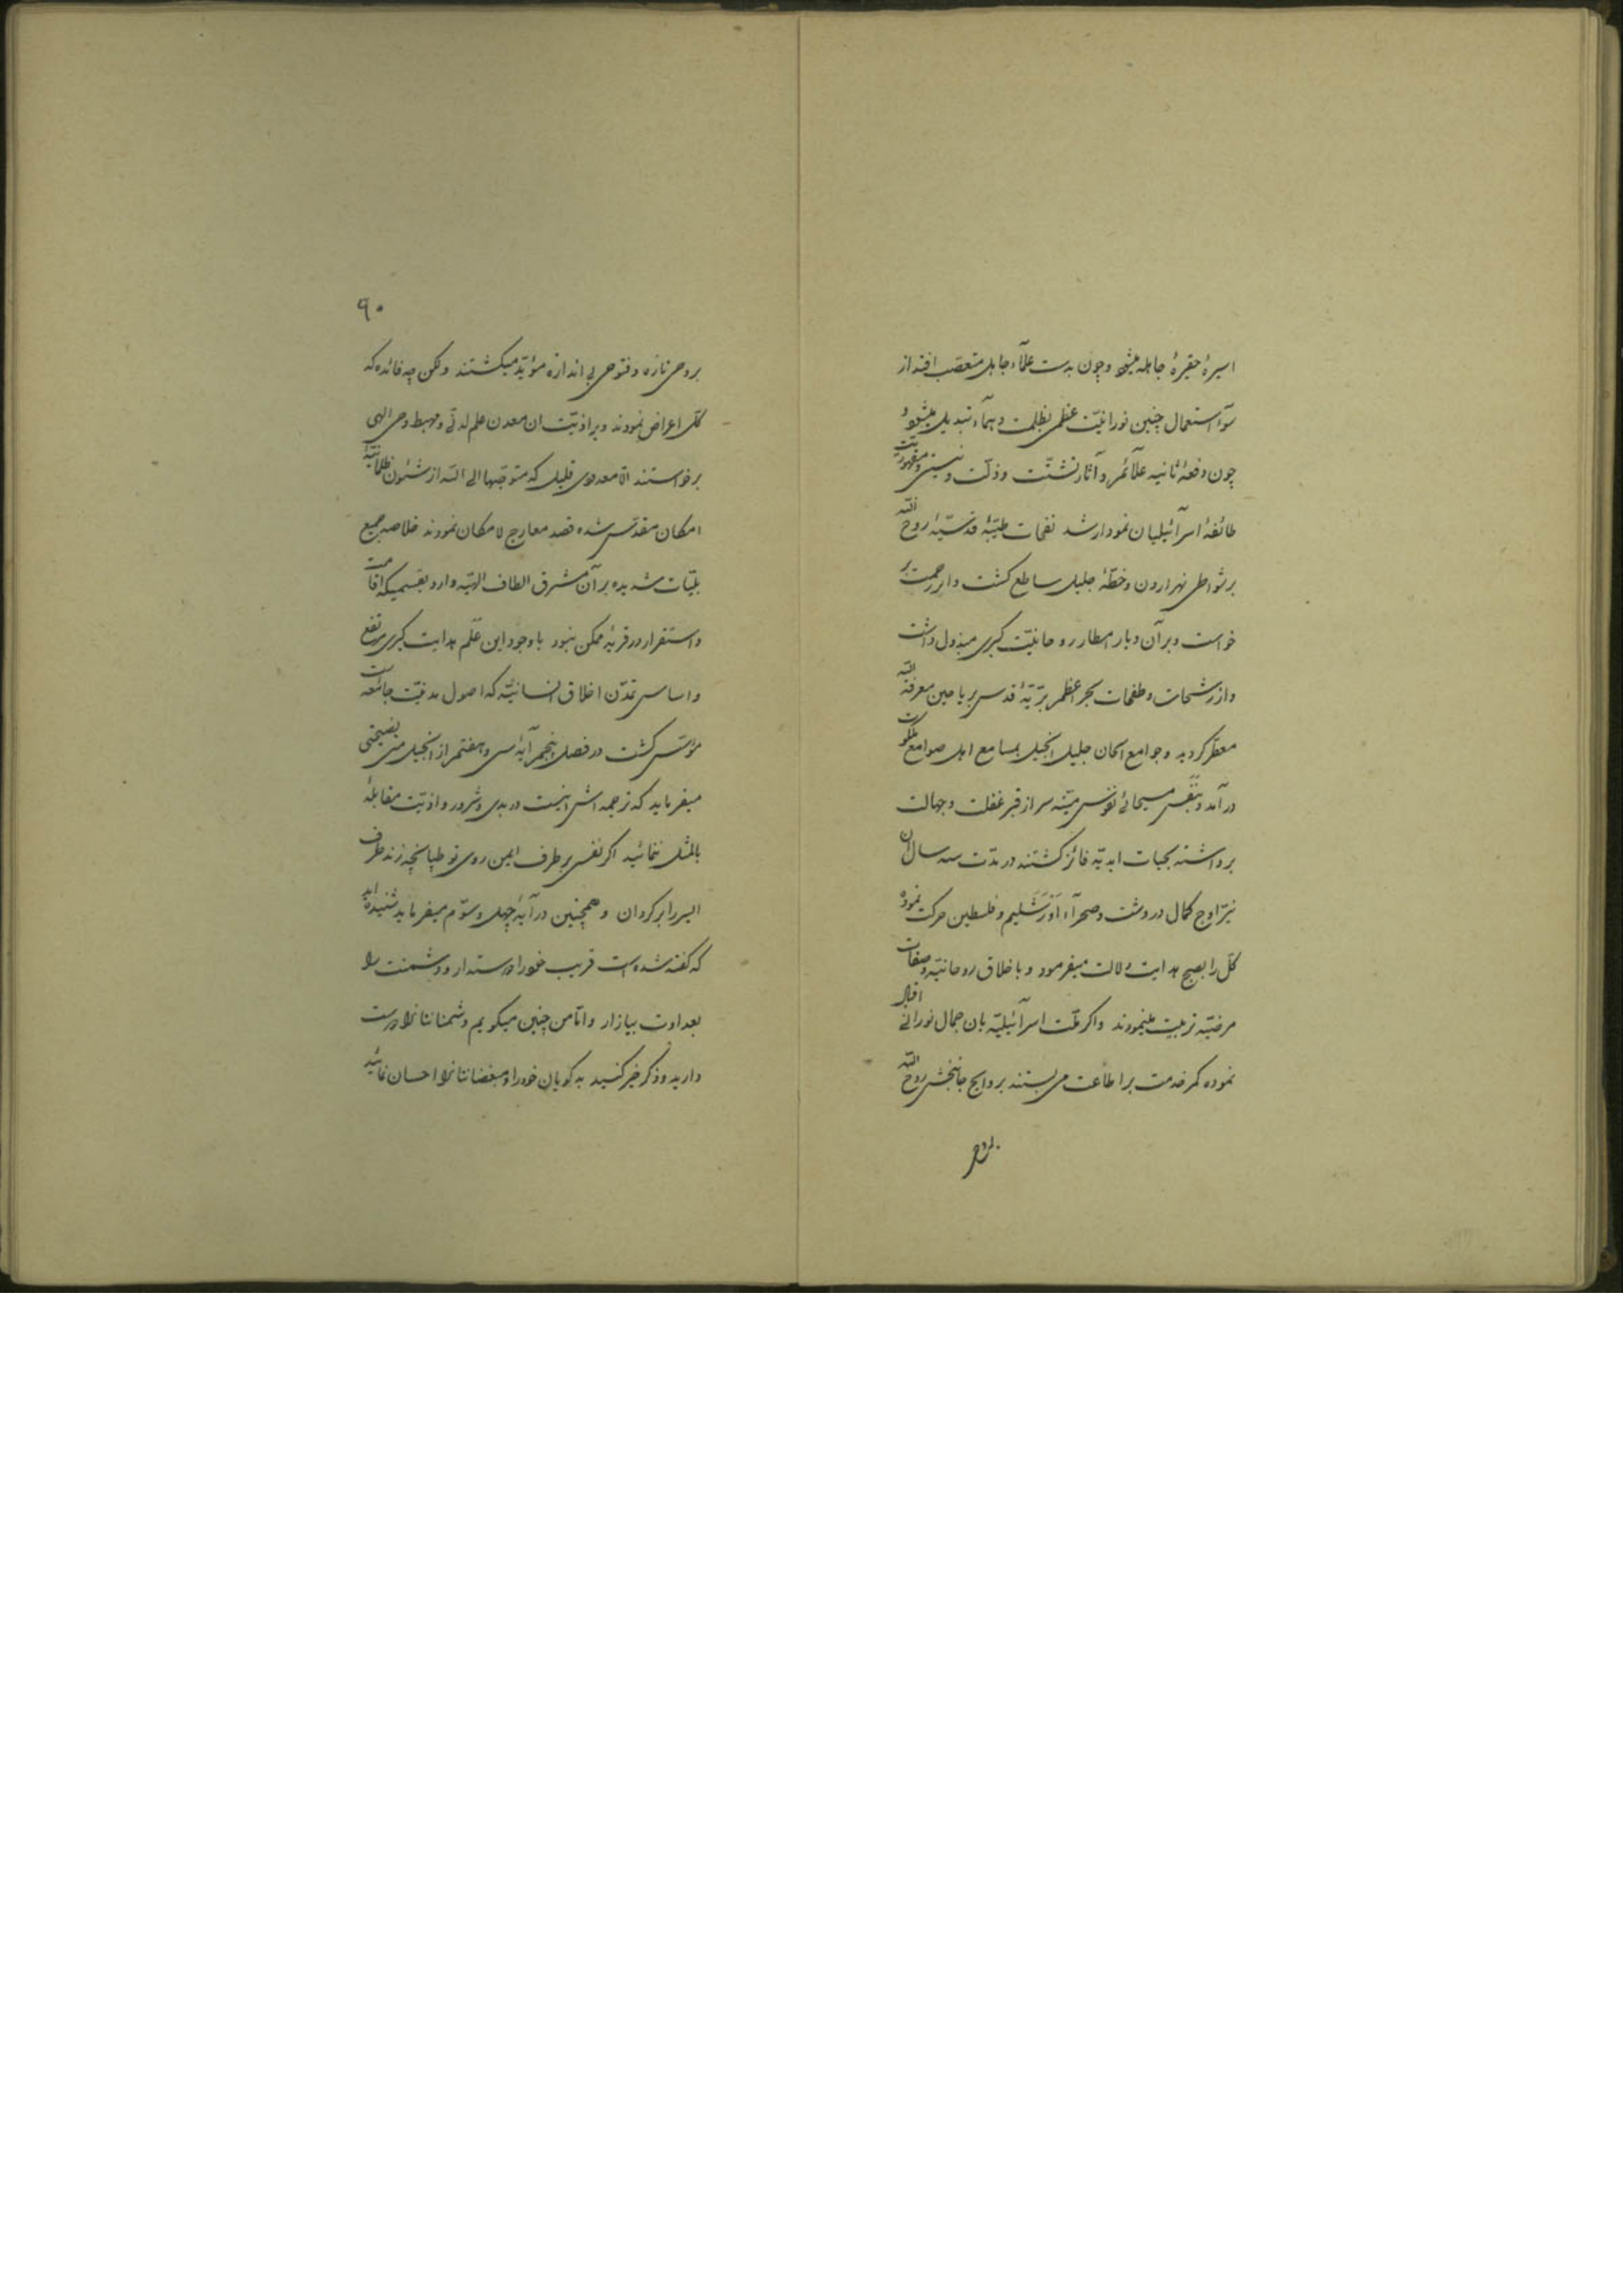 اسیرهٔ حقیرهٔ جاهله میشود و چون بدست علمآء جاهل متعصب افتد از
سوء استعمال چنین نورانیّت عظمی بظلمت دهمآء تبدیل میشود و
چون دفعهٔ ثانیه علآئم و آثار تشتّت و ذلّت و نیستی و مقهوریّت
طائفهٔ اسرآئیلیان نمودار شد نفحات طیّبهٔ قدسیّهٔ روح اللّه
بر شواطی نهر اردون و خطّهٔ جلیل ساطع گشت و ابر رحمت بر
خواست و بر آن دیار امطار روحانیّت کبری مبذول داشت
و از رشحات و طفحات بحر اعظم برّیّهٔ قدس بریاحین معرفة اللّه
معطّر گردید و جوامع الحان جلیل انجیل بمسامع اهل صوامع ملکوت
درآمد و بنَفَس مسیحائی نفوس میّته سر از قبر غفلت و جهالت
برداشته بحیات ابدیّه فائز گشتند در مدّت سه سال ان
نیّر اوج کمال در دشت و صحرآء اُورَشَلیم و فلسطین حرکت نموده
کلّ را بصبح هدایت دلالت میفرمود و باخلاق روحانیّه و صفات
مرضیّه تربیت مینمودند و اگر ملّت اسرآئیلیّه بان جمال نورانی اقبال
نموده کمر خدمت بر اطاعت می بستند بروایح جانبخش روح اللّه
بروح
۹۰
بروحی تازه و فتوحی بی اندازه مؤیّد میگشتند ولکن چه فائده که
کلّ اعراض نمودند و بر اذیّت ان معدن علم لدنّی و مهبط وحی الهی
برخواستند الّا معدودی قلیل که متوجّها الی اللّه از شئون ظلمانیّهٔ
امکان مقدّس شده قصد معارج لامکان نمودند خلاصه جمیع
بلیّات شدیده بر آن مشرق الطاف الهیّه وارد بقسمیکه اقامت
و استقرار در قریهٔ ممکن نبود با وجود این عَلَم هدایت کبری مرتفع
و اساس تمدّن اخلاق انسانیّه که اصول مدنیّت جامعه است
مؤسّس گشت در فصل پنجم آیهٔ سی و هفتم از انجیل متی نصیحتی
میفرماید که ترجمه اش اینست در بدی و شرور و اذیّت مقابلهٔ
بالمثل ننمائید اگر نفسی بر طرف ایمن روی تو طپانچه زند طرف
ایسر را برگردان و همچنین در آیهٔ چهل و سوّم میفرماید شنیده اید
که گفته شده است قریب خود را دوست دار و دشمنت را
بعداوت بیازار و امّا من چنین میگویم دشمنانتانرا دوست
دارید و ذکر خیر کنید بدگویان خود را و مبغضانتانرا احسان نمائید